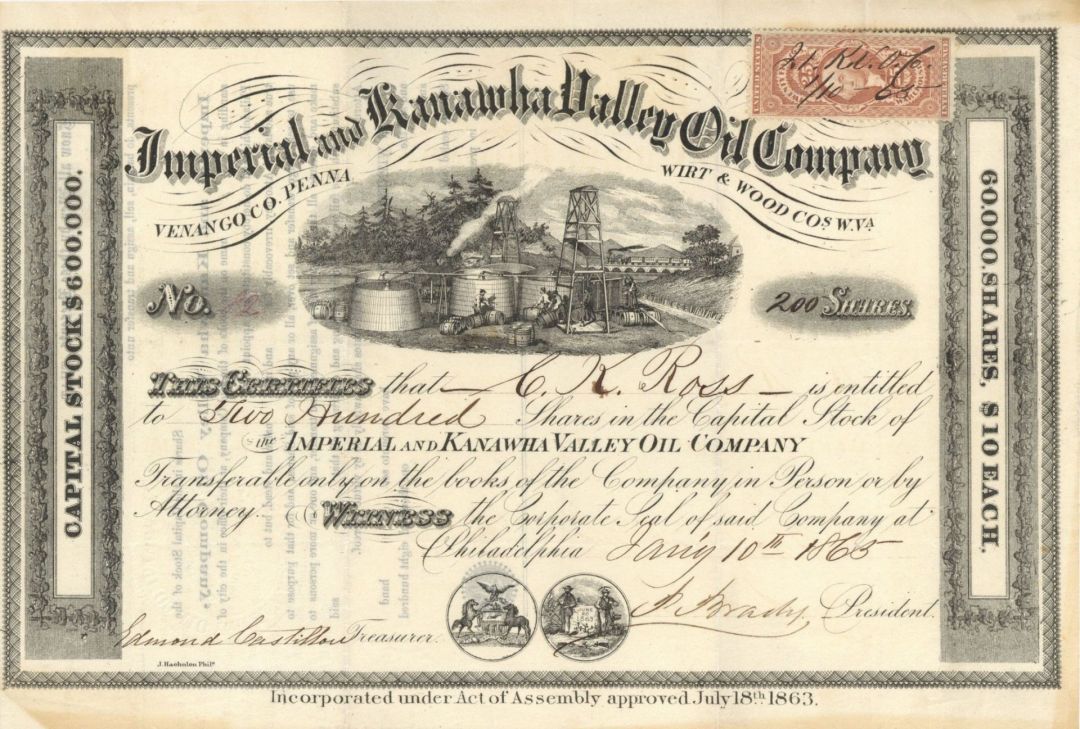 Imperial and Kanawha Valley Oil Company
VENANGO CO. PENNA
WIRT & WOOD COS. W. VA
No. 62
200 SHARES.
CAPITAL STOCK $600.000.
60.000. SHARES, $10 EACH.
THIS CERTIFIES that C. K. Ross is entitled
to Two Hundred Shares in the Capital Stock of
the IMPERIAL AND KANAWHA VALLEY OIL COMPANY
Transferable only on the books of the Company in Person or by
Attorney. WITNESS the Corporate Seal of said Company at
Philadelphia Jan'y 10th 1865
Brady President.
Edmond Castillou Treasurer.
J. Haehnlen Phila
Incorporated under Act of Assembly approved July 18th 1863.